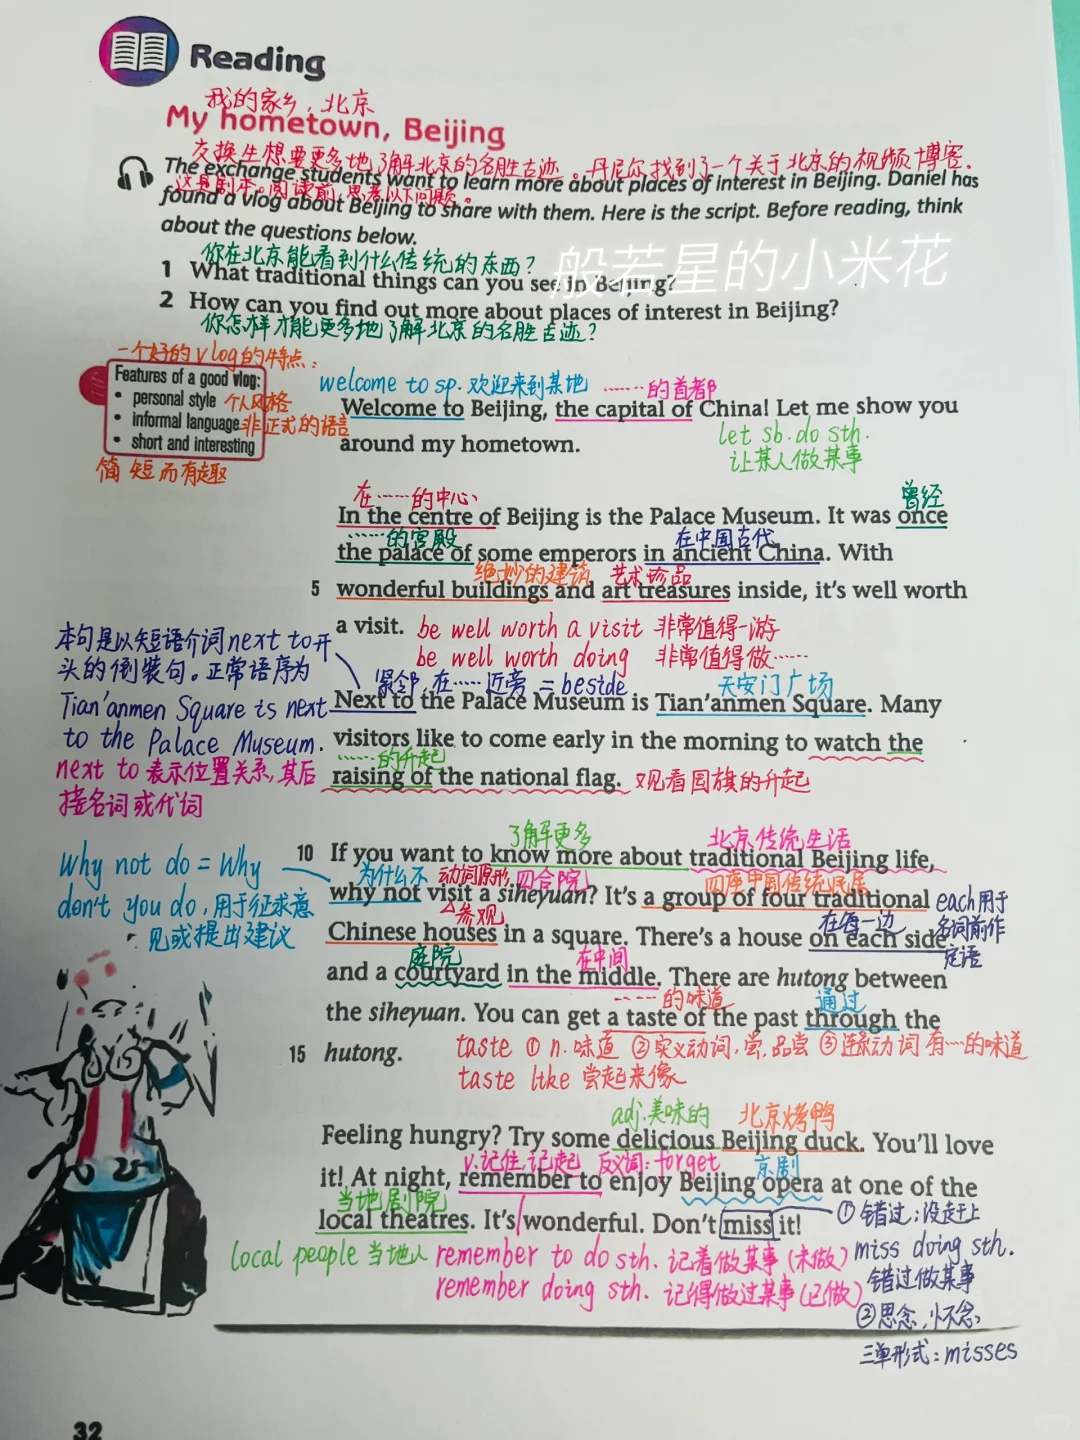 Reading
我的家乡，北京
My hometown, Beijing
交换生想要更多地了解北京的名胜古迹。丹尼尔找到了一个关于北京的视频博客.
The exchange students want to learn more about places of interest in Beijing. Daniel has
这是剧本。阅读前,思考以下问题。
found a vlog about Beijing to share with them. Here is the script. Before reading, think
about the questions below.
你在北京能看到什么传统的东西?
般若星的小米花
1 What traditional things can you see in Beijing?
2 How can you find out more about places of interest in Beijing?
你怎样才能更多地了解北京的名胜古迹?
一个好的vlog的特点:
Features of a good vlog:
• personal style 个人风格
• informal language 非正式的语言
• short and interesting
简短而有趣
welcome to sp. 欢迎来到某地 ……的首都
Welcome to Beijing, the capital of China! Let me show you
around my hometown.
let sb. do sth.
让某人做某事
在……的中心 曾经
In the centre of Beijing is the Palace Museum. It was once
……的宫殿 在中国古代
the palace of some emperors in ancient China. With
绝妙的建筑 艺术珍品
5 wonderful buildings and art treasures inside, it's well worth
a visit. be well worth a visit 非常值得一游
be well worth doing 非常值得做……
本句是以短语介词next to开
头的倒装句。正常语序为
Tian'anmen Square is next
to the Palace Museum.
next to 表示位置关系,其后
接名词或代词
紧邻,在……近旁 = beside 天安门广场
Next to the Palace Museum is Tian'anmen Square. Many
visitors like to come early in the morning to watch the
……的升起
raising of the national flag. 观看国旗的升起
了解更多 北京传统生活
10 If you want to know more about traditional Beijing life,
why not do = why
don't you do, 用于征求意
见或提出建议
为什么不 动词原形 四合院 四座中国传统民居
why not visit a siheyuan? It's a group of four traditional
参观 在每一边
each用于
名词前作
定语
Chinese houses in a square. There's a house on each side
庭院 在中间
and a courtyard in the middle. There are hutong between
……的味道 通过
the siheyuan. You can get a taste of the past through the
15 hutong.
taste ① n. 味道 ② 实义动词,尝,品尝 ③ 连系动词 有…的味道
taste like 尝起来像
adj.美味的 北京烤鸭
Feeling hungry? Try some delicious Beijing duck. You'll love
v.记住,记起 反义词: forget 京剧
it! At night, remember to enjoy Beijing opera at one of the
当地剧院
local theatres. It's wonderful. Don't miss it!
① 错过; 没赶上
miss doing sth.
错过做某事
② 思念, 怀念
三单形式: misses
local people 当地人 remember to do sth. 记着做某事 (未做)
remember doing sth. 记得做过某事 (已做)
32